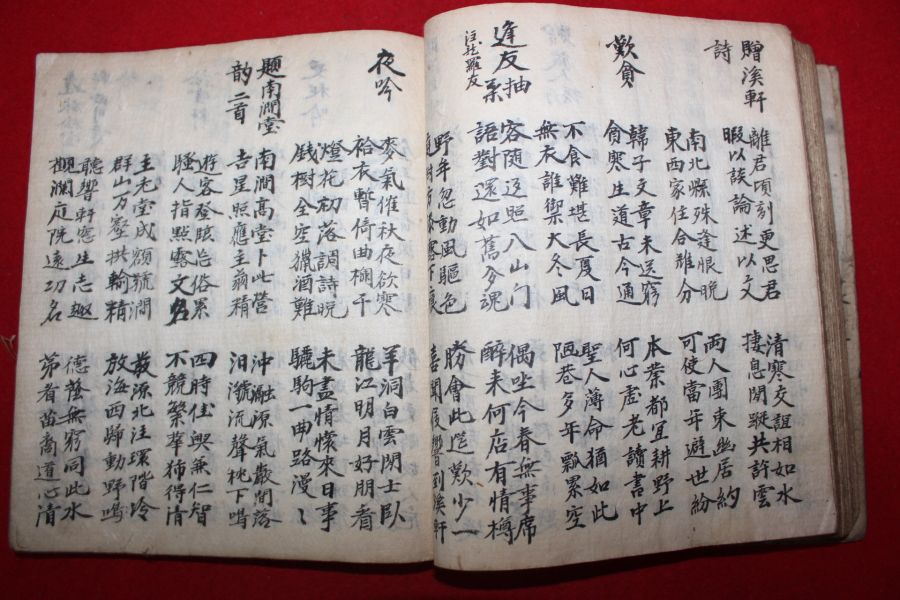 贈溪軒
詩
離君頃刻更思君
暇以談論述以文
清寒交誼相如水
捿息閑蹤共許雲
南北縣殊逢眼脫
東西家住合難分
兩人團東幽居約
可使當年避世紛
歎貧
韓子文章未送窮
貧寒生道古今通
本業都宜耕野上
何心虛老讀書中
不食難堪長夏日
無衣誰禦大冬風
聖人薄命猶如此
陋巷多年瓢累空
逢友抽
羅友
容隨逗照八山門
語對還如舊分魂
偶坐今春無事席
醉来何店有情樽
野年忽動風驅色
勝會此筵歎少一
喜聞 響到溪軒
夜吟
麥氣催秋夜欲寒
袷衣暫倚曲欄干
羊洞白雲閑士臥
龍江明月好朋看
燈花初落調詩晚
錢樹全空獵酒難
未盡情懷來日事
驪駒一曲路漫〻
題南澗堂
韵二首
南澗高堂卜此營
吉星照應主翁精
沖瀜源氣散間落
汩㶁流聲枕下鳴
遊客登臨 俗累
騷人指點露文名
四時佳興兼仁智
不競繁華獨得清
主老堂成額號澗
群山万壑拱輸精
發源北注環階冷
放海西歸動野鳴
聽響軒窓生志趣
觀瀾庭院遠功名
德馨無窮同此水
者苗裔道心清